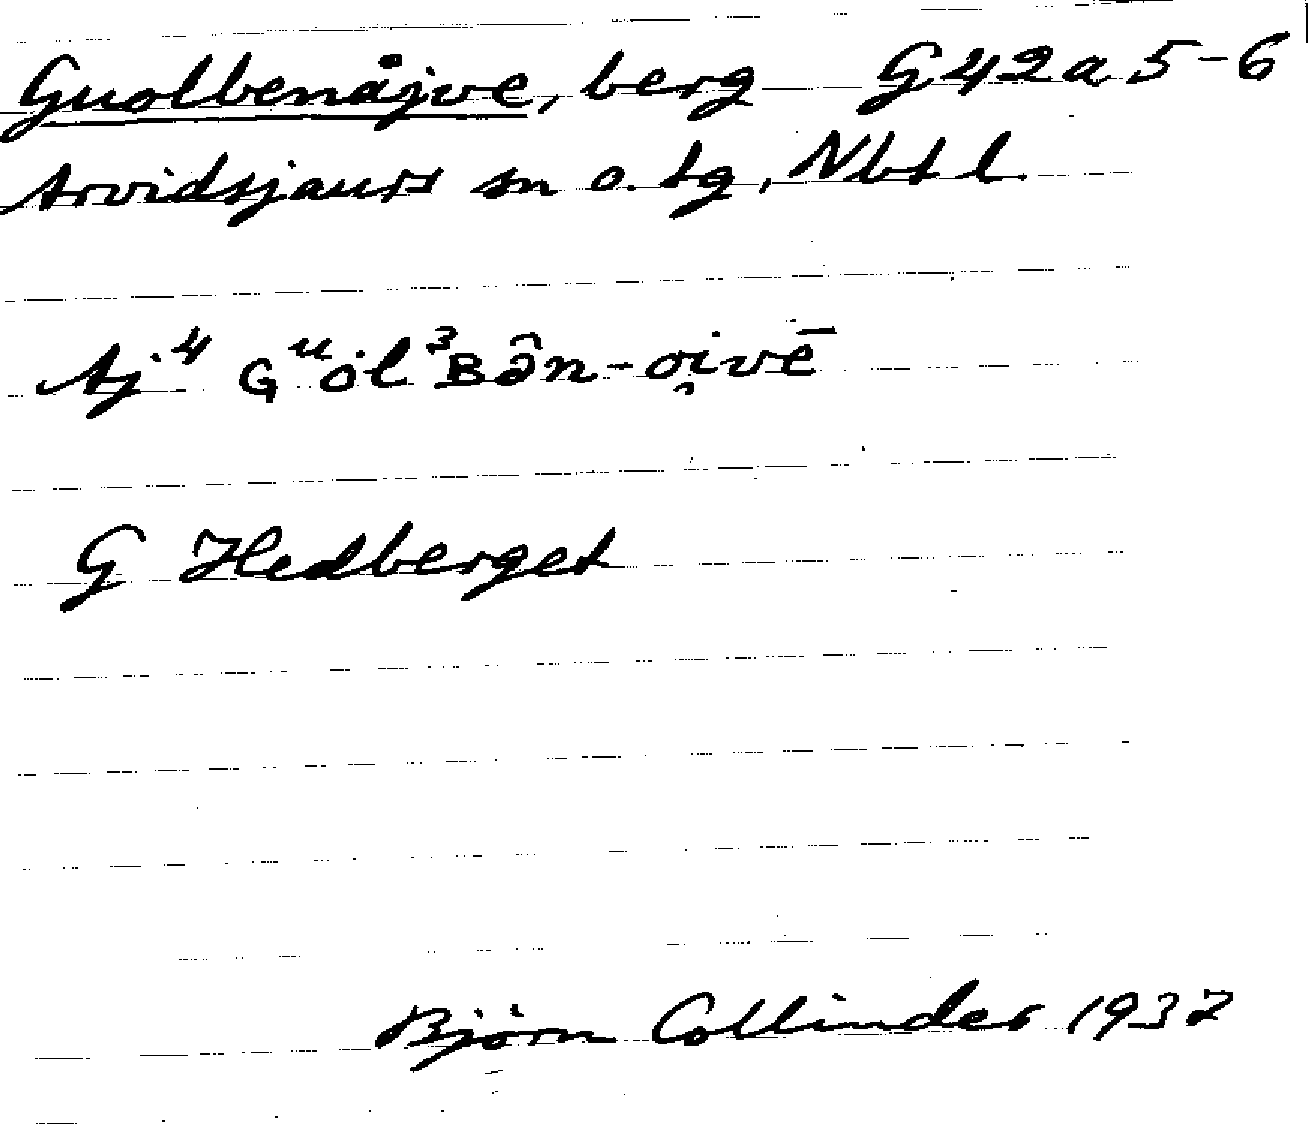 Guolbenåjve, berg G42a5-6
Arvidsjaurs sn o. tg, Nbt l.
Aj⁴ Gᵘȯl³Bə̂n-oi̯vē
G Hedberget
Björn Collinder 1937